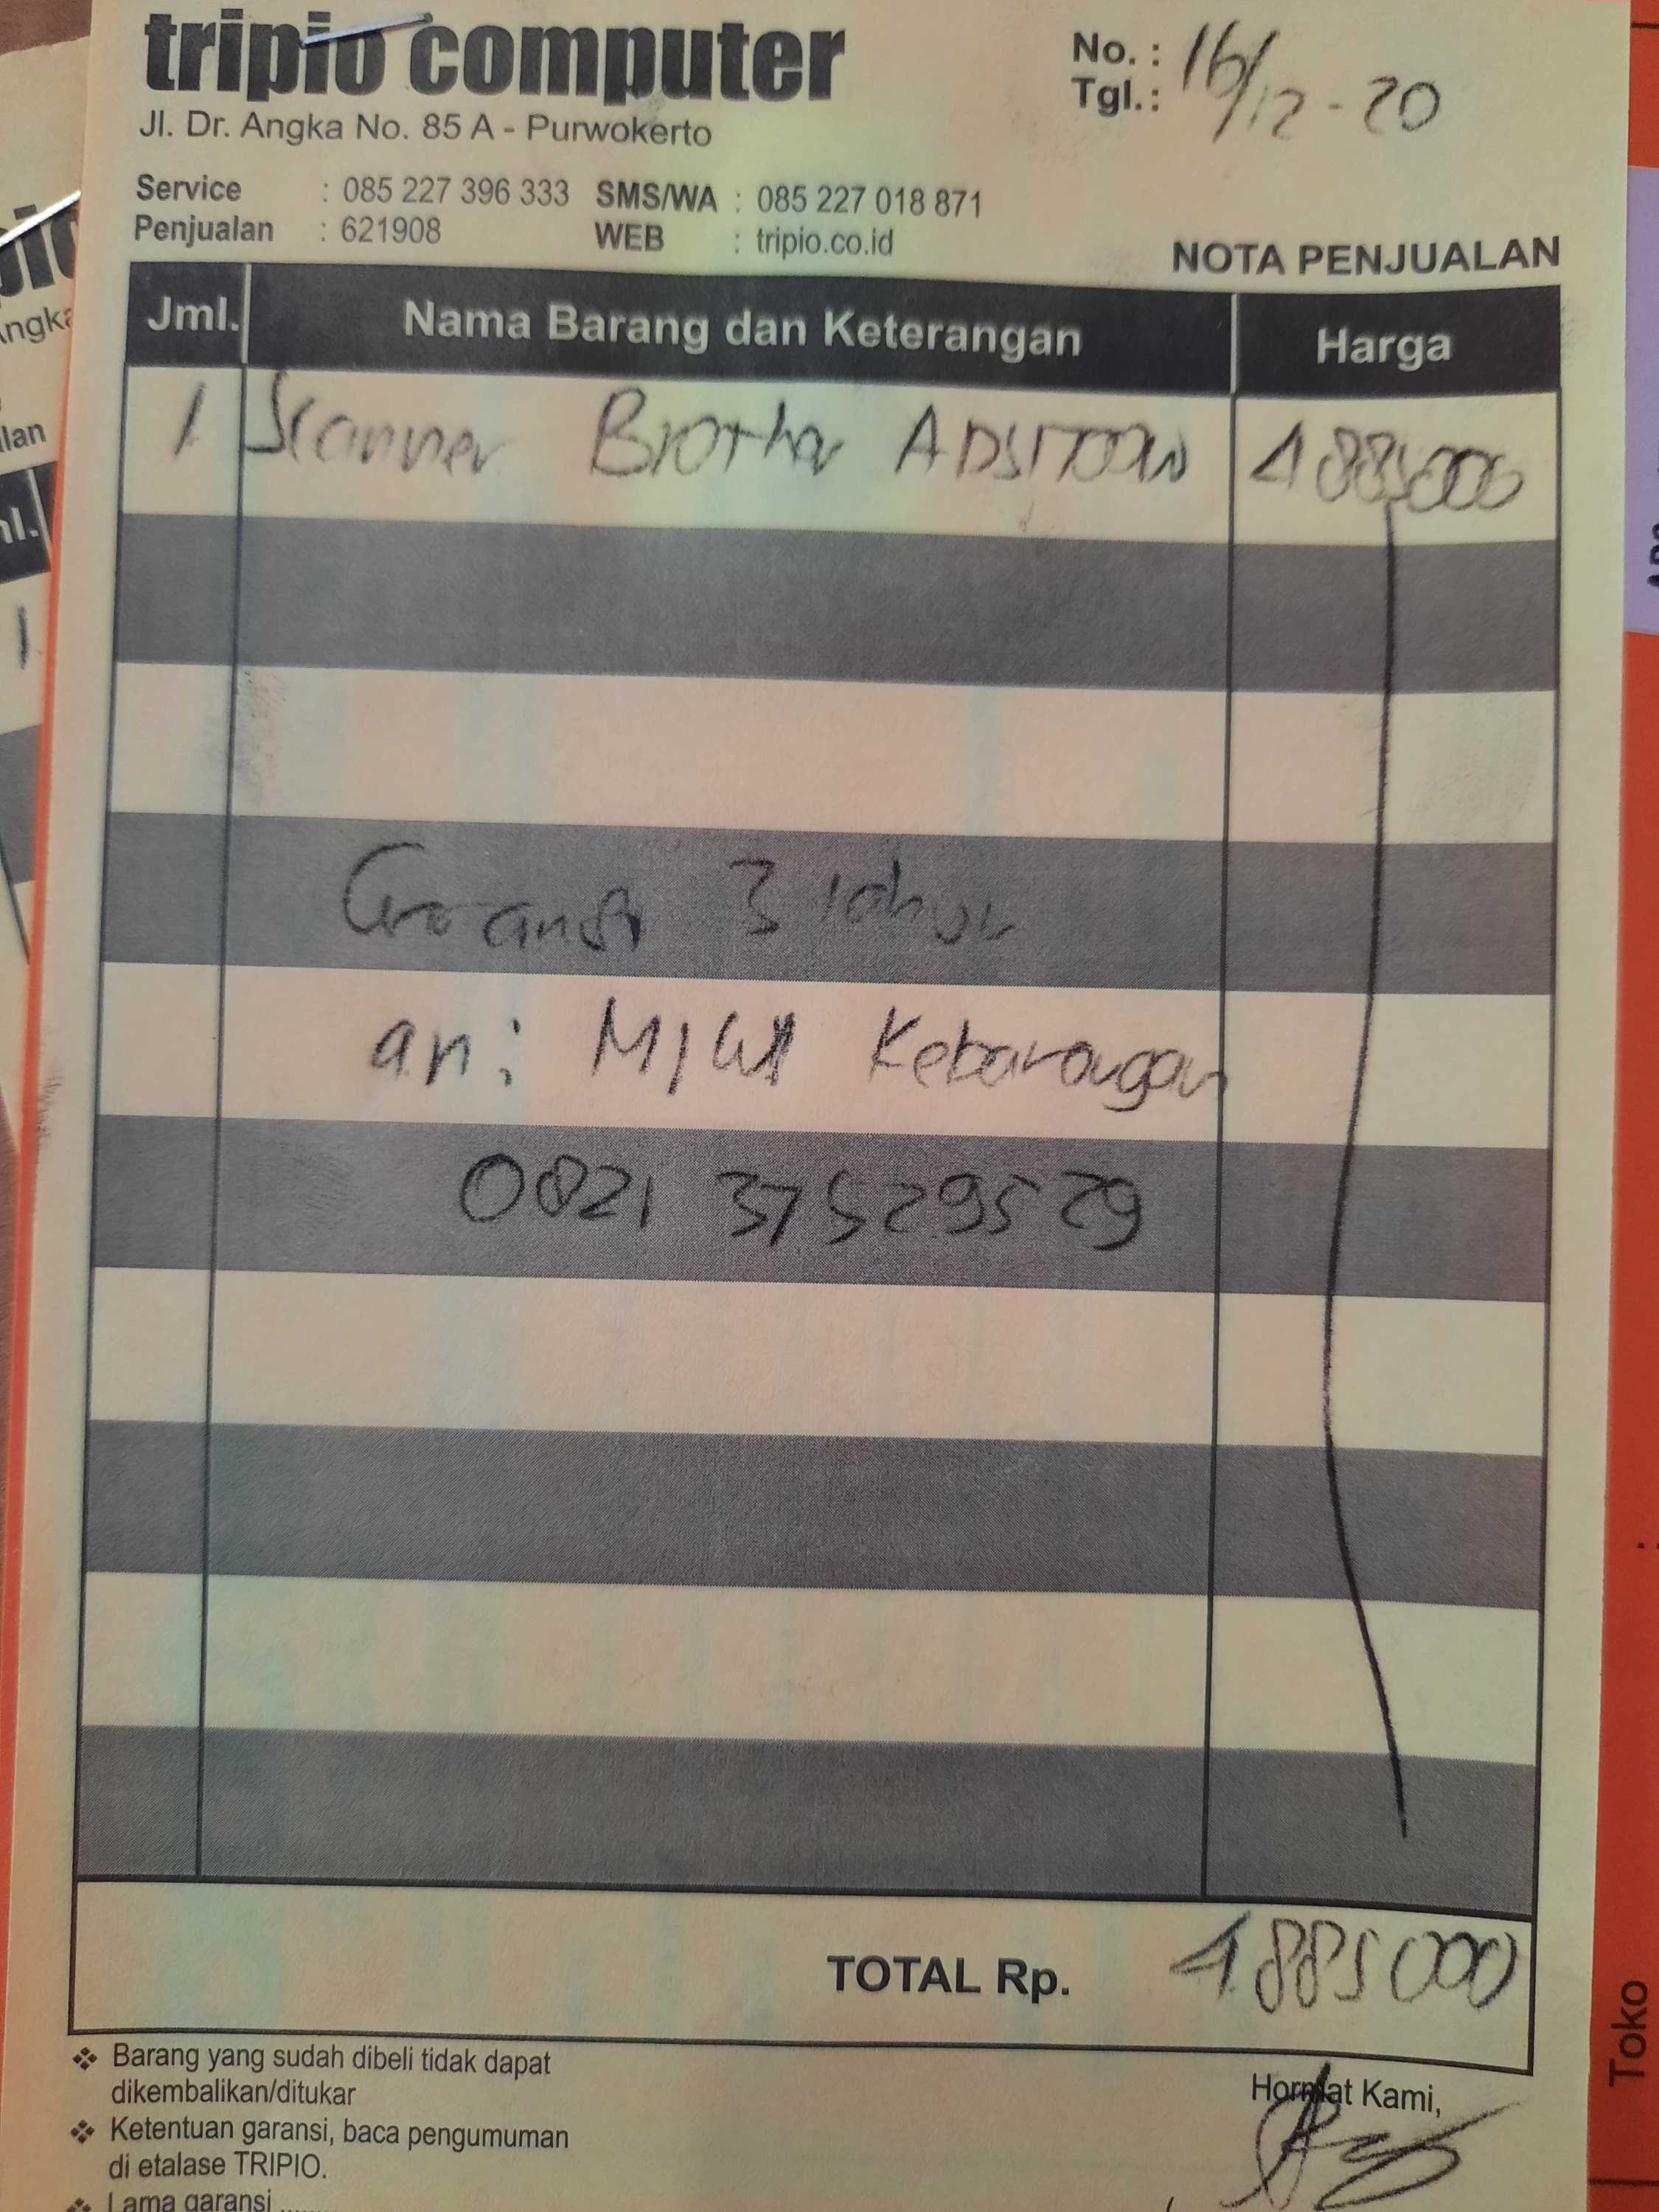 tripio computer
Jl. Dr. Angka No. 85 A - Purwokerto
No. :
Tgl. : 16/12-20
Service : 085 227 396 333 SMS/WA : 085 227 018 871
Penjualan : 621908 WEB : tripio.co.id
NOTA PENJUALAN
Jml. Nama Barang dan Keterangan Harga
1 Scanner Brother ADS1700W 4885000
Garansi 3 tahun
an: Kebarongan
0821 37529529
TOTAL Rp. 4885000
❖ Barang yang sudah dibeli tidak dapat
dikembalikan/ditukar
❖ Ketentuan garansi, baca pengumuman
di etalase TRIPIO.
❖ Lama garansi ........
Hormat Kami,
Toko